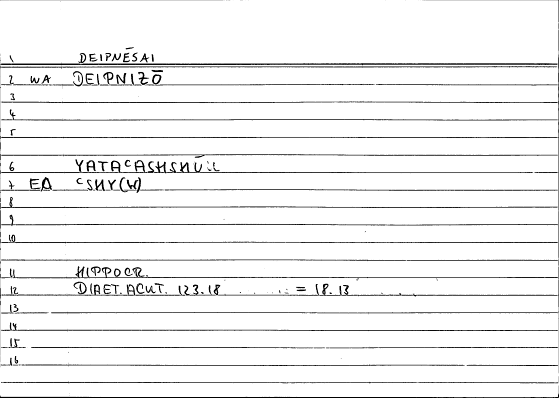 1 DEIPNĒSAI
2 WA DEIPNIZŌ
3
4
5
6 YATAᶜASHSHŪ:L
7 EA ᶜSHY(W)
8
9
10
11 HIPPOCR.
12 DIAET. ACUT. 123.18 = 18.13
13
14
15
16